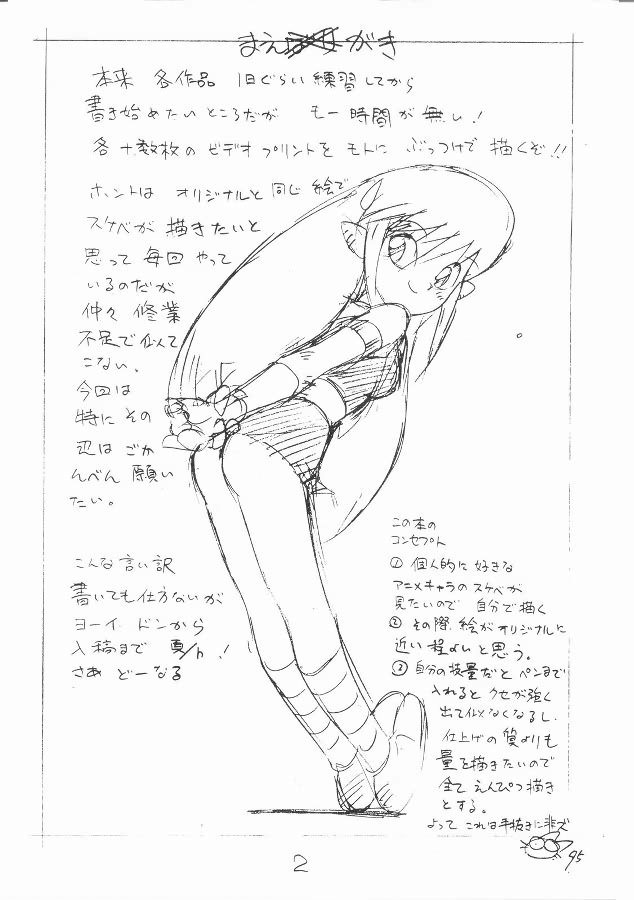 まえがき
本来 各作品 1日ぐらい練習してから
書き始めたいところだが もー時間が無し!
各十数枚のビデオプリントをモトに ぶっつけで描くぞ!!
ホントは オリジナルと同じ絵で
スケベが描きたいと
思って毎回やって
いるのだが
仲々修業
不足で似て
こない、
今回は
特にその
辺はごか
んべん願い
たい。
こんな言い訳
書いても仕方ないが
ヨーイドンから
入稿まで
さあ どーなる
この本の
コンセプト
① 個人的に好きな
アニメキャラのスケベが
見たいので 自分で描く
② その際、絵がオリジナルに
近い程よいと思う。
③ 自分の技量だとペンまで
入れるとクセが強く
出て似なくなるし、
仕上げの質よりも
量を描きたいので
全てえんぴつ描き
とする。
よって これは手抜きに非ズ
95
2